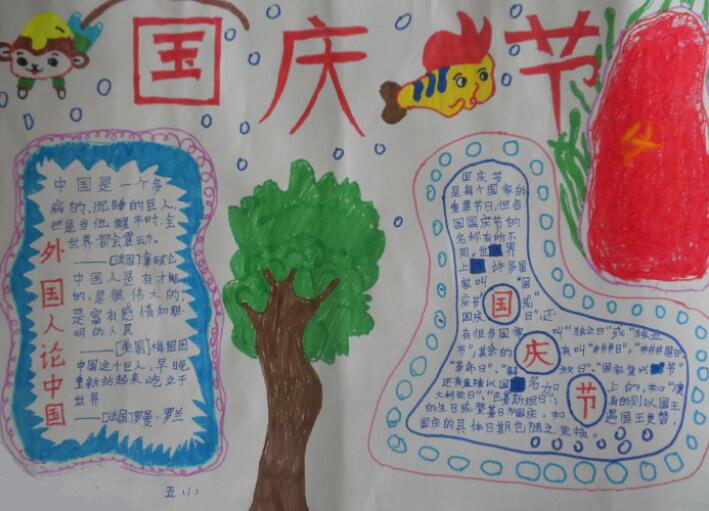 国庆节
外国人论中国
中国是一个多
病的、沉睡的巨人,
但是当他醒平时,全
世界都会震动。
——[法国]拿破仑
中国人是有才能
的,是很伟大的,
是富有感情和聪
明的人民
——[美国]
中国这个巨人,早晚
重新站起来屹立于
世界
——[法国]罗曼·罗兰
五(1)
国庆节
国庆节
是每个国家的
重要节日,但各
国国庆节的
名称有所不
同,世界
上许多国
家叫“国
庆节”或“
国庆日”,还
有很多国家叫“独立日”或“独立
节”,其余的有叫“###日”,“###国日
“革命日”,“解放日”“国家复兴节”
还有直接以国名加上的,如“澳
大利亚日”,“巴基斯坦日”;有的则以国王
的生日或登基日为国庆,如遇国王更替,
国庆的具体日期也随之更换。